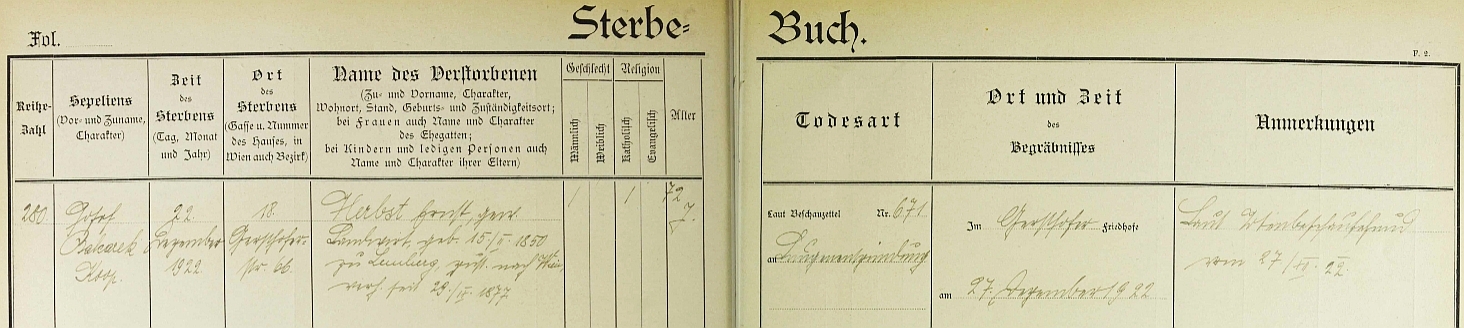 Fol.
Sterbe=
Buch.
P. 2.
Reihe-
Zahl
Sepeliens
(Vor- und Zuname,
Charakter)
Zeit
des
Sterbens
(Tag, Monat
und Jahr)
Ort
des
Sterbens
(Gasse u. Nummer
des Hauses, in
Wien auch Bezirk)
Name des Verstorbenen
(Zu- und Vorname, Charakter,
Wohnort, Stand, Geburts- und Zuständigkeitsort;
bei Frauen auch Name und Charakter
des Ehegatten;
bei Kindern und ledigen Personen auch
Name und Charakter ihrer Eltern)
Geschlecht
Männlich
Weiblich
Religion
Katholisch
Evangelisch
Alter
Todesart
Ort und Zeit
des
Begräbnisses
Anmerkungen
280
Josef
Koop.
22.
Dezember
1922
18.
Gersthofer-
str. 66.
Herbst Ernst, gew.
Landwirt, geb. 15./V. 1850
zu Lemberg, zust. nach Wien,
verh. seit 29./IV. 1877
/
/
72
J.
Laut Beschauzettel Nr. 671
an Lungenentzündung
Im Gersthofer Friedhofe
am 27. Dezember 1922
Laut Totenbeschaubefund
vom 27./XII. 22.